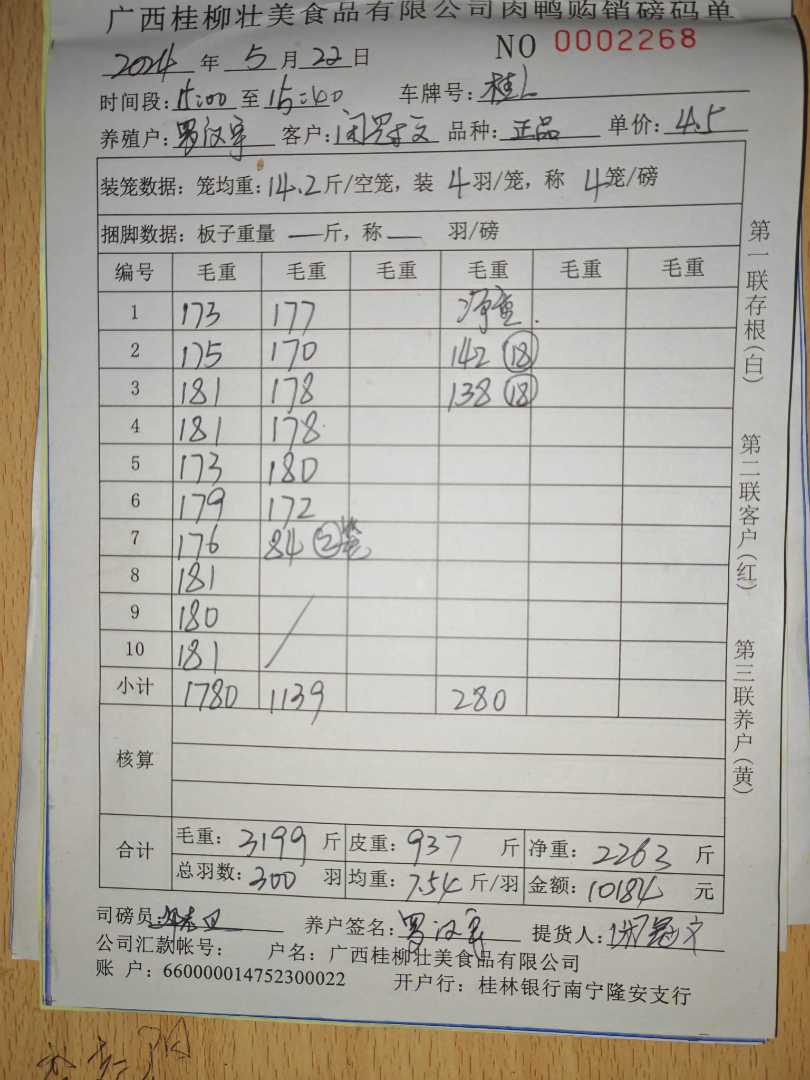 广西桂柳壮美食品有限公司肉鸭购销磅码单
2024 年 5 月 22 日 NO 0002268
时间段: 15:00 至 15:40 车牌号: 桂L
养殖户: 罗汉 客户: 闭冠文 品种: 正品 单价: 4.5
装笼数据: 笼均重: 14.2 斤/空笼, 装 4 羽/笼, 称 4 笼/磅
捆脚数据: 板子重量 — 斤, 称 — 羽/磅
编号 毛重 毛重 毛重 毛重 毛重 毛重
1 173 177 净重.
2 175 170 142 ⑱
3 181 178 138 ⑱
4 181 178
5 173 180
6 179 172
7 176 84 ②笼
8 181
9 180 /
10 181
小计 1780 1139 280
核算
合计 毛重: 3199 斤 皮重: 937 斤 净重: 2263 斤
总羽数: 300 羽 均重: 7.54 斤/羽 金额: 10184 元
司磅员: 养户签名: 罗汉 提货人: 闭冠文
公司汇款帐号: 户名: 广西桂柳壮美食品有限公司
账 户: 660000014752300022 开户行: 桂林银行南宁隆安支行
第一联存根(白) 第二联客户(红) 第三联养户(黄)